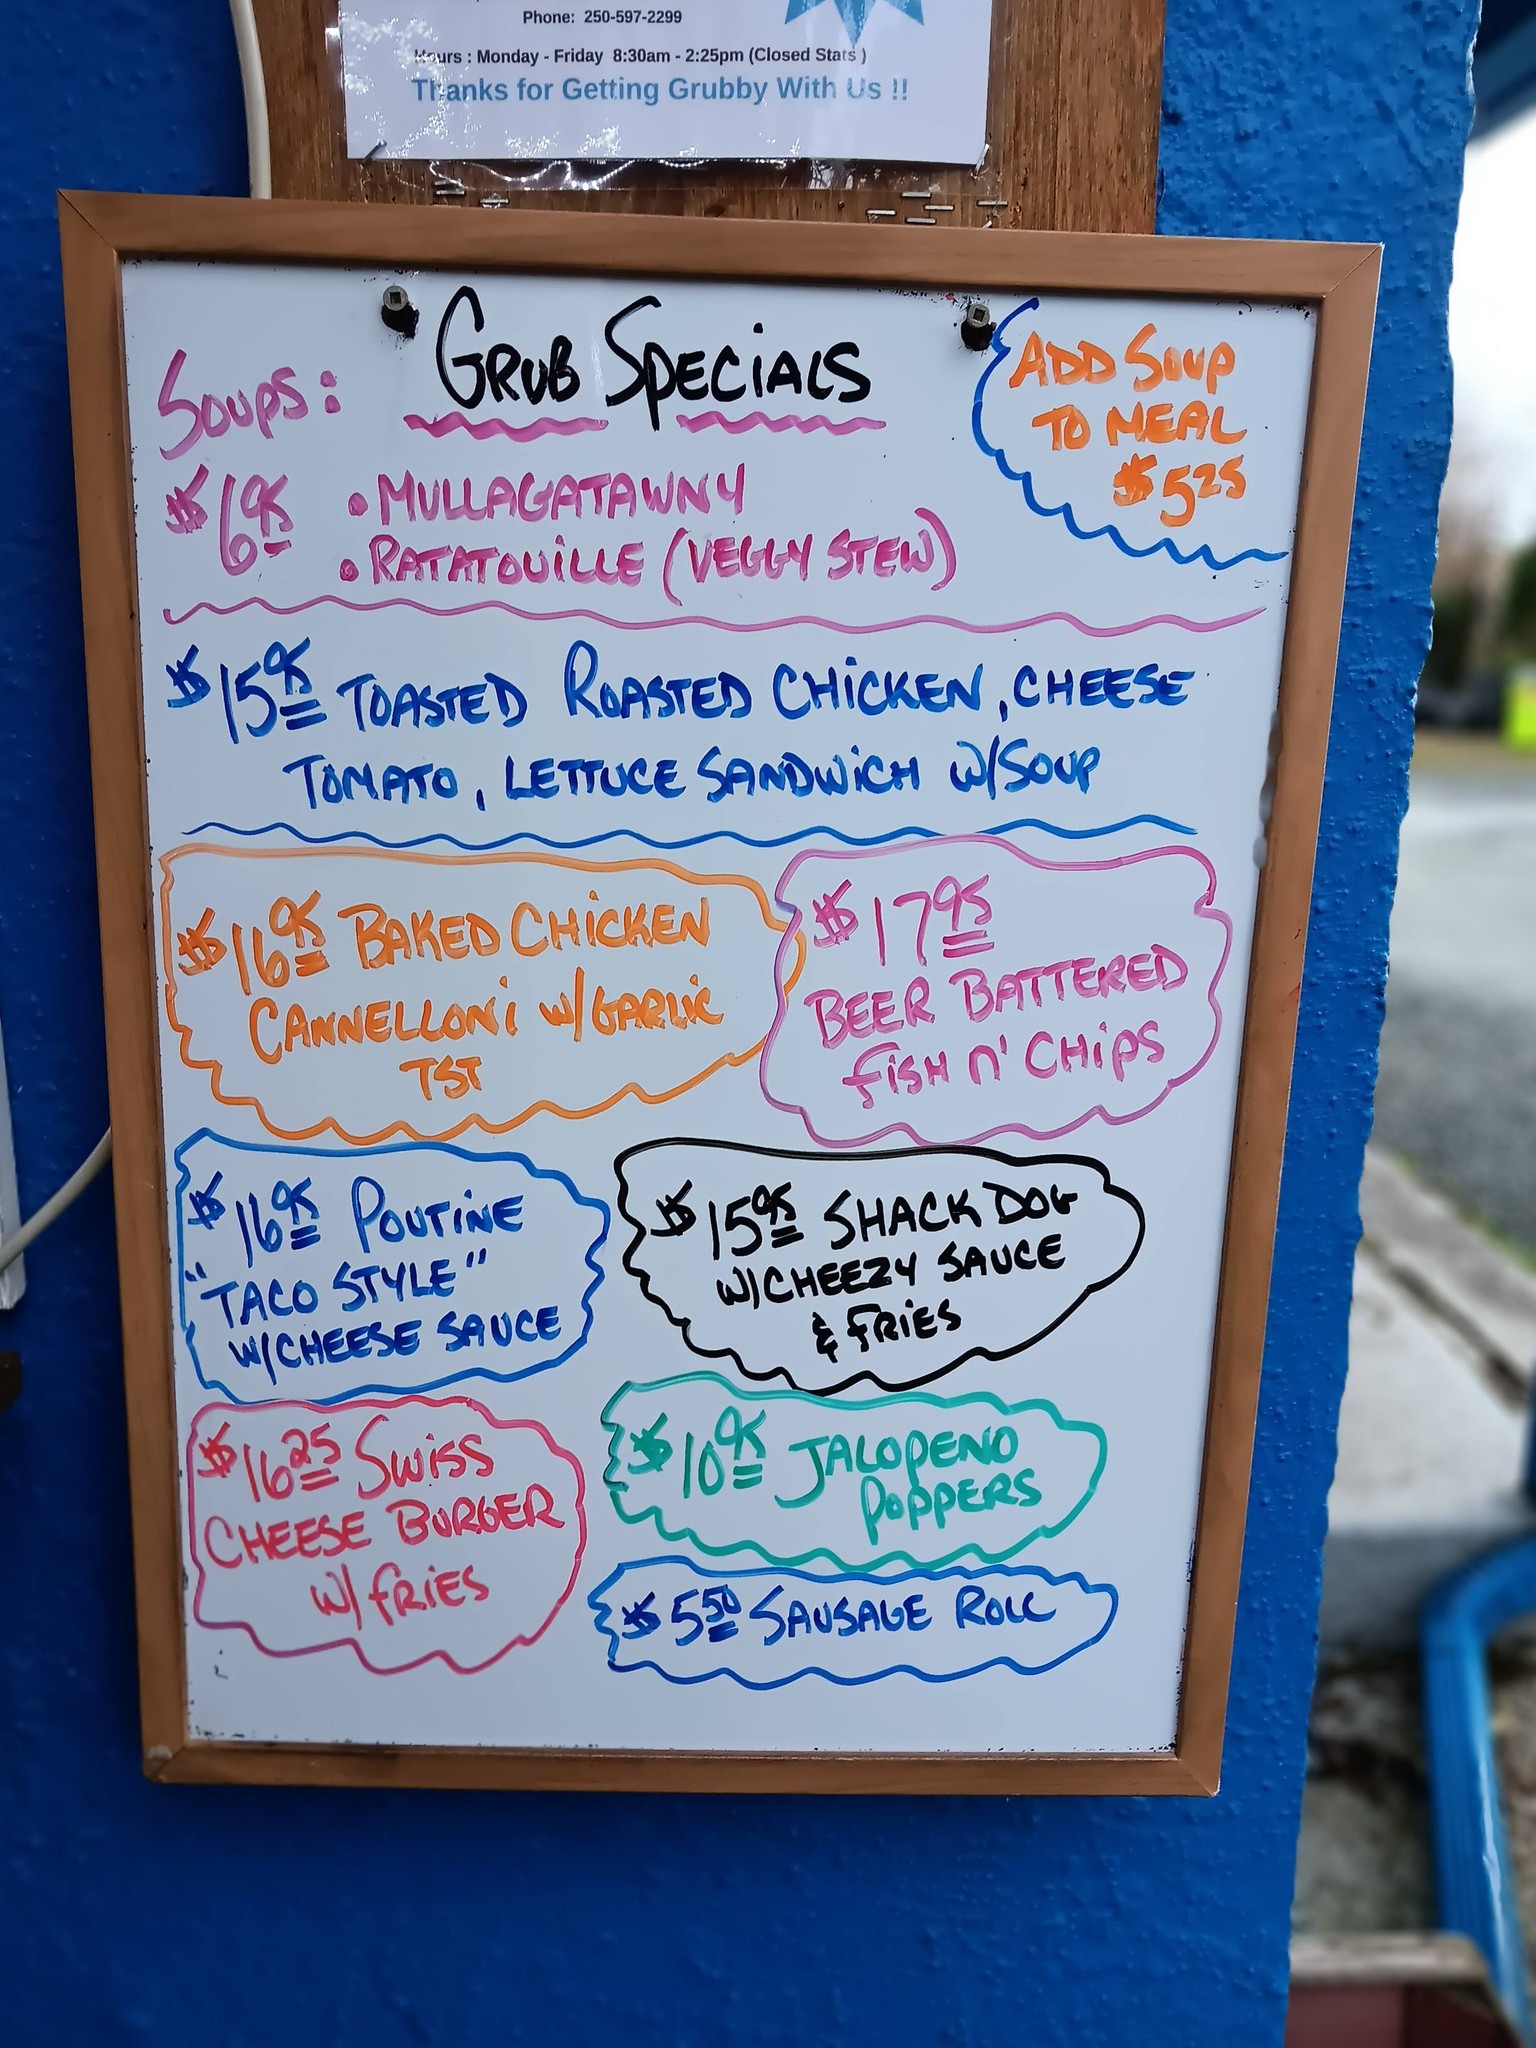 Phone: 250-597-2299
Hours : Monday - Friday 8:30am - 2:25pm (Closed Stats )
Thanks for Getting Grubby With Us !!
GRUB SPECIALS
SOUPS:
$6.95 • MULLAGATAWNY
• RATATOUILLE (VEGGY STEW)
ADD SOUP
TO MEAL
$5.25
$15.95 TOASTED ROASTED CHICKEN, CHEESE
TOMATO, LETTUCE SANDWICH W/SOUP
$16.95 BAKED CHICKEN
CANNELLONI W/GARLIC
TST
$17.95
BEER BATTERED
FISH N' CHIPS
$16.95 POUTINE
"TACO STYLE"
W/CHEESE SAUCE
$15.95 SHACK DOG
W/CHEEZY SAUCE
& FRIES
$16.25 SWISS
CHEESE BURGER
W/ FRIES
$10.95 JALOPENO
POPPERS
$5.50 SAUSAGE ROLL